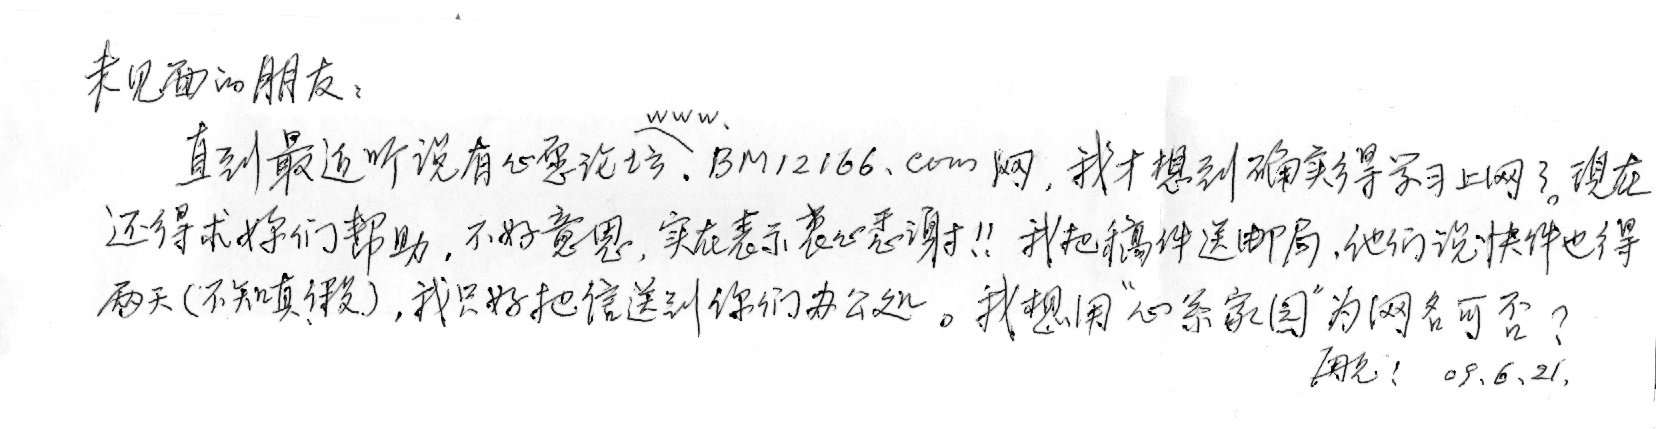 未见面的朋友：
www.
直到最近听说有心愿论坛、BM12166.com网，我才想到确实得学习上网了。现在
还得求你们帮助，不好意思，实在表示衷心感谢！！我把稿件送邮局，他们说快件也得
两天（不知真假），我只好把信送到你们办公处。我想用“心系家园”为网名可否？
09.6.21.